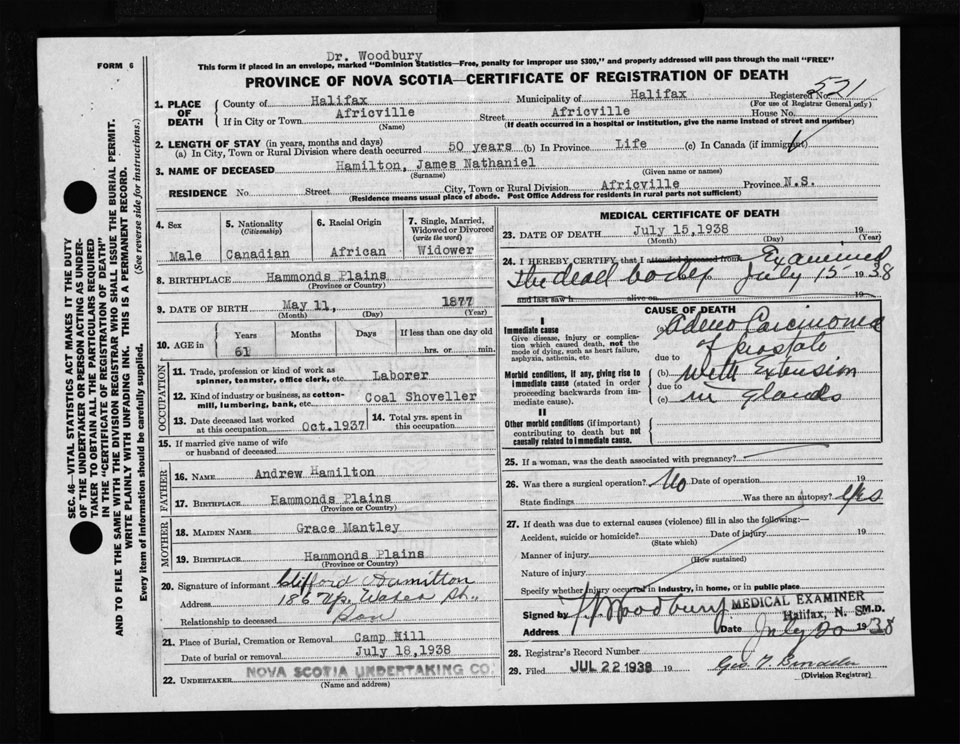 Dr. Woodbury
FORM 6
This form if placed in an envelope, marked "Dominion Statistics—Free, penalty for improper use $300," and properly addressed will pass through the mail "FREE"
PROVINCE OF NOVA SCOTIA—CERTIFICATE OF REGISTRATION OF DEATH
Registered No. 521
(For use of Registrar General only)
1. PLACE OF DEATH
County of Halifax Municipality of Halifax
If in City or Town Africville Street Africville House No.
(Name) (If death occurred in a hospital or institution, give the name instead of street and number)
2. LENGTH OF STAY (in years, months and days)
(a) In City, Town or Rural Division where death occurred 50 years (b) In Province Life (c) In Canada (if immigrant)
3. NAME OF DECEASED Hamilton, James Nathaniel
(Surname) (Given name or names)
RESIDENCE No. Street City, Town or Rural Division Africville Province N.S.
(Residence means usual place of abode. Post Office Address for residents in rural parts not sufficient)
4. Sex 5. Nationality (Citizenship) 6. Racial Origin 7. Single, Married, Widowed or Divorced (write the word)
Male Canadian African Widower
8. BIRTHPLACE Hammonds Plains
(Province or Country)
9. DATE OF BIRTH May 11, 1877
(Month) (Day) (Year)
10. AGE in Years Months Days If less than one day old
61 hrs. or min.
OCCUPATION
11. Trade, profession or kind of work as spinner, teamster, office clerk, etc. Laborer
12. Kind of industry or business, as cotton-mill, lumbering, bank, etc. Coal Shoveller
13. Date deceased last worked at this occupation Oct.1937 14. Total yrs. spent in this occupation
15. If married give name of wife or husband of deceased
FATHER
16. NAME Andrew Hamilton
17. BIRTHPLACE Hammonds Plains
(Province or Country)
MOTHER
18. MAIDEN NAME Grace Mantley
19. BIRTHPLACE Hammonds Plains
(Province or Country)
20. Signature of informant Clifford Hamilton
Address 186 Up. Water St.,
Relationship to deceased Son
21. Place of Burial, Cremation or Removal Camp Hill
Date of burial or removal July 18,1938
22. UNDERTAKER NOVA SCOTIA UNDERTAKING CO.
(Name and address)
MEDICAL CERTIFICATE OF DEATH
23. DATE OF DEATH July 15,1938 19
(Month) (Day) (Year)
24. I HEREBY CERTIFY that I attended deceased from Examined
the dead body July 15 1938
and last saw h alive on 19
CAUSE OF DEATH
I
Immediate cause
Give disease, injury or complication which caused death, not the mode of dying, such as heart failure, asphyxia, asthenia, etc.
Morbid conditions, if any, giving rise to immediate cause (stated in order proceeding backwards from immediate cause).
II
Other morbid conditions (if important) contributing to death but not causally related to immediate cause.
(a) Adeno Carcinoma
of prostate
due to
(b) with Extension
due to
(c) in Glands
25. If a woman, was the death associated with pregnancy?
26. Was there a surgical operation? No Date of operation 19
State findings Was there an autopsy? Yes
27. If death was due to external causes (violence) fill in also the following:—
Accident, suicide or homicide? Date of injury 19
(State which)
Manner of injury
(How sustained)
Nature of injury
Specify whether injury occurred in industry, in home, or in public place
Signed by Woodbury MEDICAL EXAMINER
Halifax, N. S. M.D.
Address Date July 20 1938
28. Registrar's Record Number
29. Filed JUL 22 1938 19
(Division Registrar)
SEC. 46—VITAL STATISTICS ACT MAKES IT THE DUTY
OF THE UNDERTAKER OR PERSON ACTING AS UNDER-
TAKER TO OBTAIN ALL THE PARTICULARS REQUIRED
IN THE "CERTIFICATE OF REGISTRATION OF DEATH"
AND TO FILE THE SAME WITH THE DIVISION REGISTRAR WHO SHALL ISSUE THE BURIAL PERMIT.
WRITE PLAINLY WITH UNFADING INK. THIS IS A PERMANENT RECORD.
Every item of information should be carefully supplied. (See reverse side for instructions.)